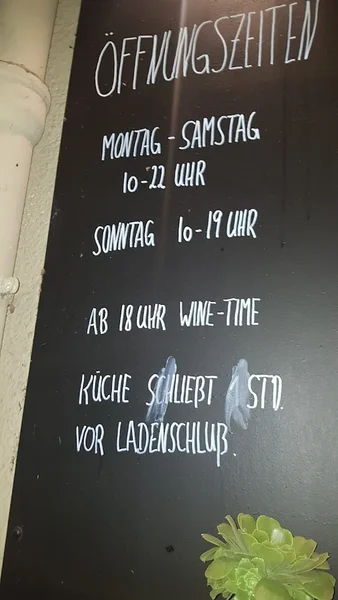 ÖFFNUNGSZEITEN
MONTAG - SAMSTAG
10-22 UHR
SONNTAG 10-19 UHR
AB 18 UHR WINE-TIME
KÜCHE SCHLIEßT 1 STD.
VOR LADENSCHLUß.